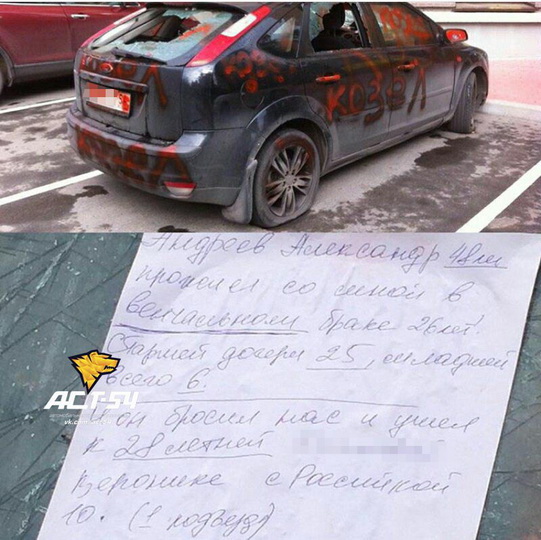 КОЗЕЛ
КОЗЕЛ
Андреев Александр 48 лет
прожил со мной в
венчальном браке 26 лет.
Старшей дочери 25, младшей
всего 6.
И он бросил нас и ушел
к 28 летней
Веронике с Российской
10. (1 подъезд)
АСТ-54